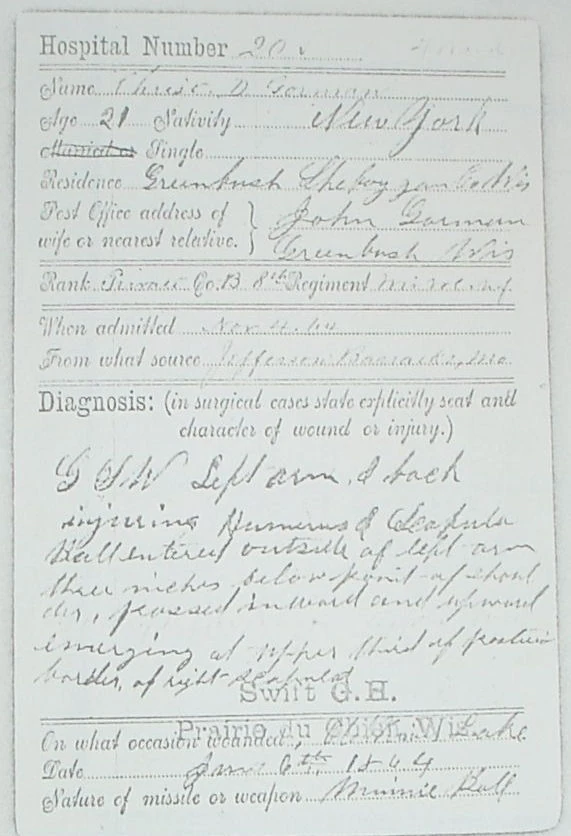 Hospital Number 20
Name D Gorman
Age 21 Nativity New York
Married or Single
Residence Greenbush Sheboygan Co Wis
Post Office address of wife or nearest relative. } John Gorman
Greenbush Wis
Rank Private Co. B 8th Regiment Wis
When admitted Nov 4. 64
From what source Jefferson Barracks, Mo.
Diagnosis: (in surgical cases state explicitly seat and
character of wound or injury.)
G S W Left arm & back
injuring Humerus & Scapula
Ball entered outside of left arm
three inches below point of shoul
der, passed inward and upward
emerging at upper third of posterior
border, of right scapula
Swift G.H.
Prairie du Chien, Wis.
On what occasion wounded, Lake
Date June 6th. 1864
Nature of missile or weapon Minnie Ball